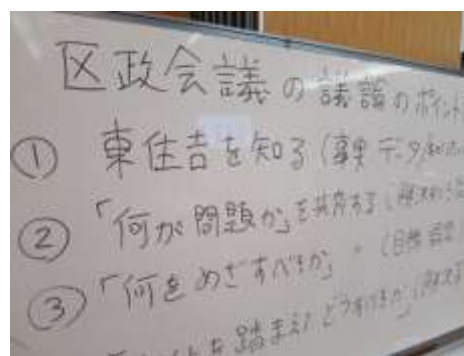 区政会議の議論のポイント
① 東住吉を知る (事実 データ
② 「何が問題か」を共有する (
③ 「何をめざすべきか」 (目標
を踏まえた どうすべきか